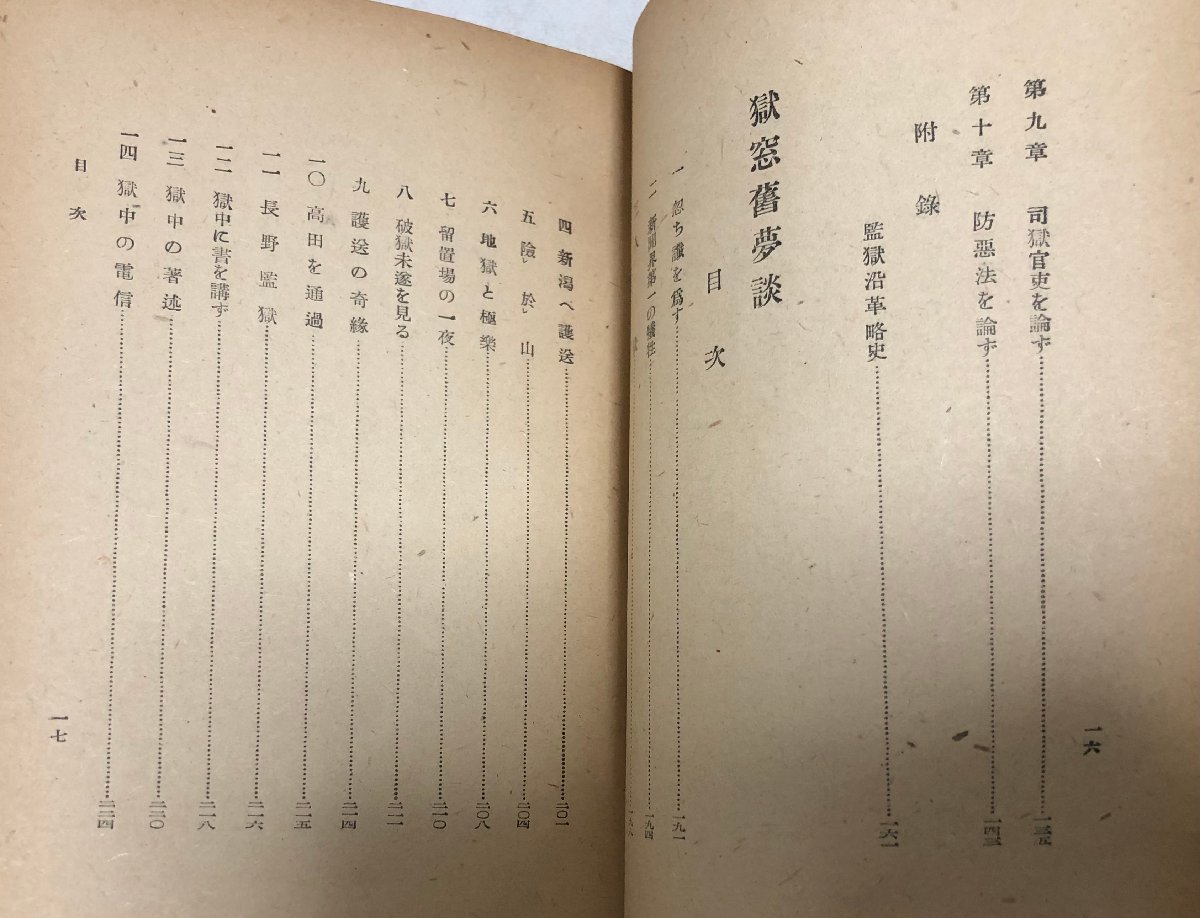 第九章 司獄官吏を論ず……一三五
第十章 防惡法を論ず……一四三
附錄
監獄沿革略史……一六一
獄窓舊夢談
目次
一 忽ち讖を爲す……一九一
二 新聞界第一の犧牲……一九四
一六
四 新潟へ護送……二〇一
五 險於山……二〇四
六 地獄と極樂……二〇八
七 留置場の一夜……二一〇
八 破獄未遂を見る……二一一
九 護送の奇緣……二一四
一〇 高田を通過……二一五
一一 長野監獄……二一六
一二 獄中に書を講ず……二一八
一三 獄中の著述……二二〇
一四 獄中の電信……二二四
目次
一七